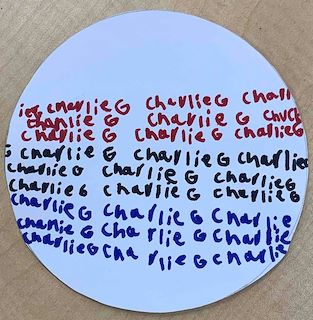 ie G charlie G charlie G charli
charlie G charlie G chuck
charlie G charlie G charlie G
G charlie G charlie G charlie
charlie G charlie G charlie G
charlie G charlie G charlie G
charlie G charlie G charlie
charlie G charlie G charlie
charlie G charlie G charlie